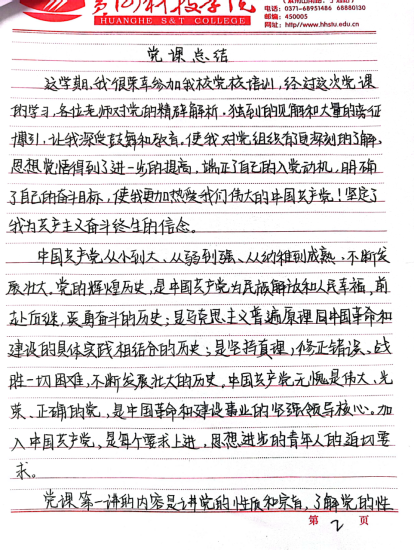 黄河科技学院
HUANGHE S&T COLLEGE
电话: 0371-68951486 68880130
邮编: 450005
网址: http://www.hhstu.edu.cn
党课总结
这学期,我很荣幸参加我校党校培训,经过这次党课
的学习,各位老师对党的精辟解析,独到的见解和大量的旁征
博引,让我深受鼓舞和教育,使我对党组织有更深刻的了解,
思想觉悟得到了进一步的提高,端正了自己的入党动机,明确
了自己的奋斗目标,使我更加热爱我们伟大的中国共产党!坚定了
我为共产主义奋斗终生的信念。
中国共产党从小到大、从弱到强、从幼稚到成熟,不断发
展壮大。党的辉煌历史,是中国共产党为民族解放和人民幸福,前
赴后继,英勇奋斗的历史;是马克思主义普遍原理同中国革命和
建设的具体实践相结合的历史;是坚持真理,修正错误、战
胜一切困难,不断发展壮大的历史。中国共产党无愧是伟大、光
荣、正确的党,是中国革命和建设事业的坚强领导核心。加
入中国共产党、是每个要求上进,思想进步的青年人的迫切要
求。
党课第一讲的内容是讲党的性质和宗旨,了解党的性
第 2 页